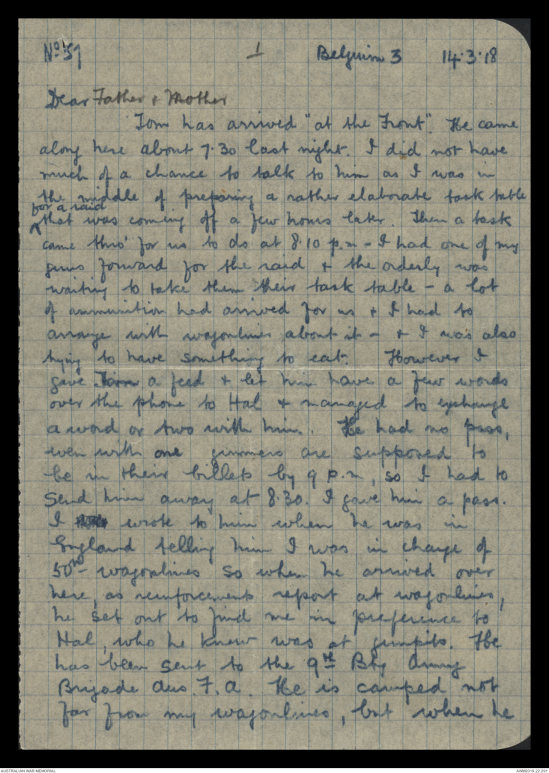 No 57 1 Belgium 3 14.3.18
Dear Father & Mother
Tom has arrived "at the Front". He came
along here about 7.30 last night. I did not have
much of a chance to talk to him as I was in
the middle of preparing a rather elaborate task table
for a raid
that was coming off a few hours later. Then a task
came thro' for us to do at 8.10 p.m - I had one of my
guns forward for the raid & the orderly was
waiting to take them their task table - a lot
of ammunition had arrived for us & I had to
arrange with wagonlines about it - & I was also
trying to have something to eat. However I
gave Tom a feed & let him have a few words
over the phone to Hal & managed to exchange
a word or two with him. He had no pass,
even with one gunners are supposed to
be in their billets by 9 p.m, so I had to
send him away at 8.30. I gave him a pass.
I wrote to him when he was in
England telling him I was in charge of
50th wagonlines so when he arrived over
here, as reinforcements report at wagonlines,
he set out to find me in preference to
Hal, who he knew was at gunpits. He
has been sent to the 9th Bty Army
Brigade Aus F.A. He is camped not
far from my wagonlines, but when he
AUSTRALIAN WAR MEMORIAL